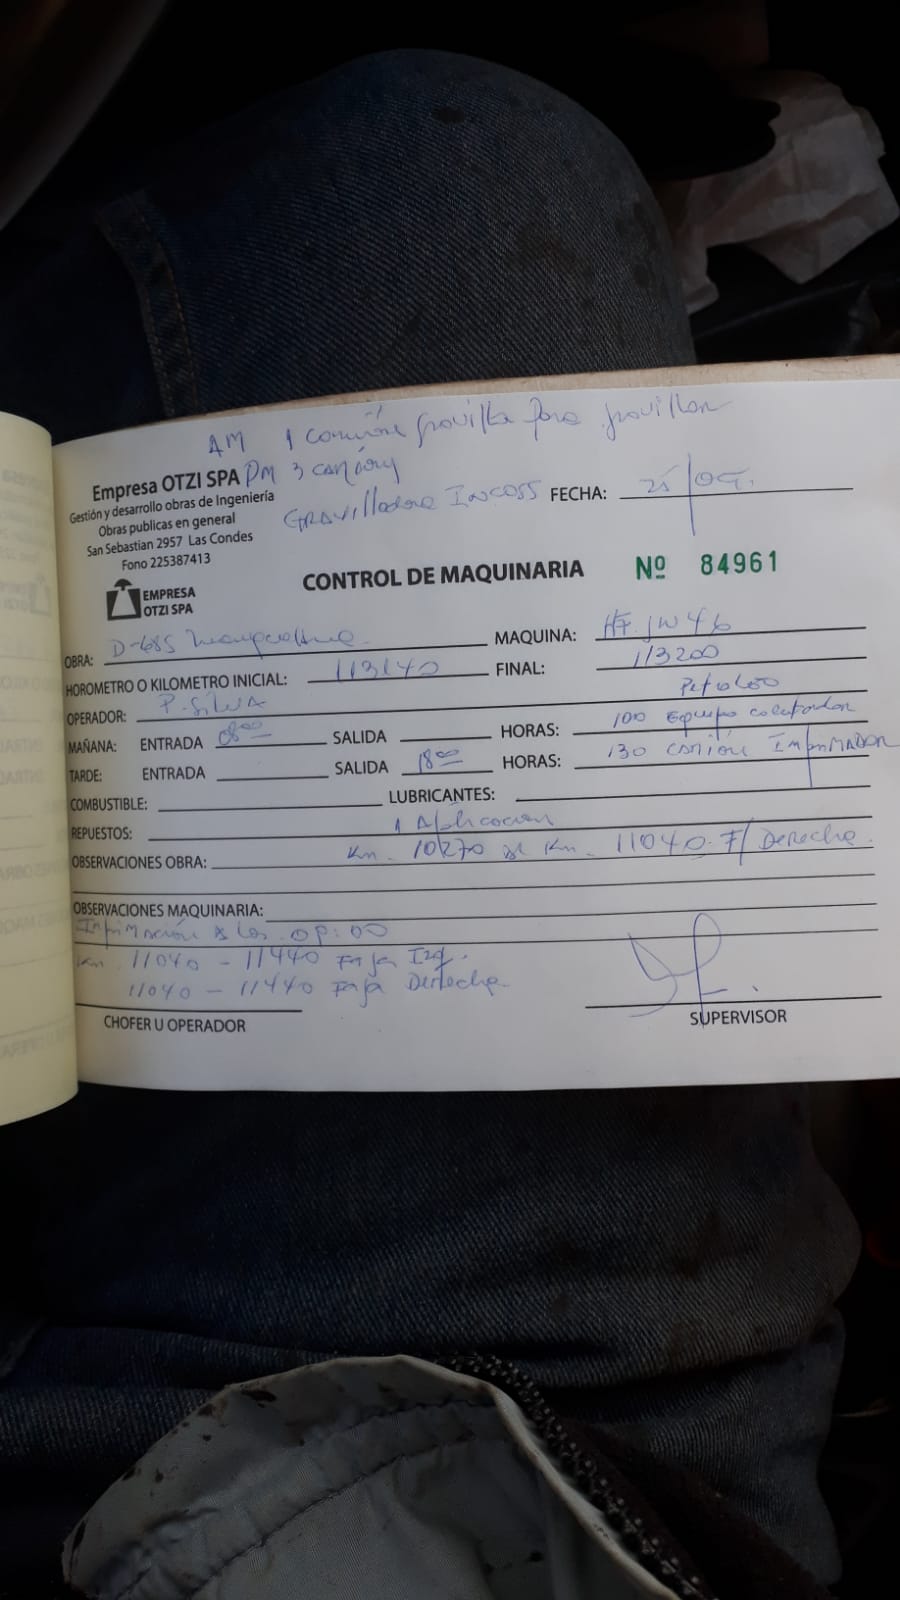 AM 1 camión gravilla para gravillar
Empresa OTZI SPA PM 3
Gestión y desarrollo obras de Ingeniería
Obras publicas en general
San Sebastian 2957 Las Condes
Fono 225387413
GRAVilladora INCOSS FECHA: 25/
EMPRESA
OTZI SPA
CONTROL DE MAQUINARIA Nº 84961
OBRA: D-685 MAQUINA:
HOROMETRO O KILOMETRO INICIAL: 113140 FINAL: 113200
OPERADOR: P. Silva Petroleo
MAÑANA: ENTRADA 08:00 SALIDA HORAS: 100 Equipo calefactor
TARDE: ENTRADA SALIDA 18:00 HORAS: 130 camión ImpriMADOR
COMBUSTIBLE: LUBRICANTES:
REPUESTOS: 1 Aplicacion
OBSERVACIONES OBRA: Km. 10270 al Km. 11040. F/ Derecha.
OBSERVACIONES MAQUINARIA:
ImpriMación A las
Km 11040 - 11440 Faja Izq.
11040 - 11440 Faja Derecha
CHOFER U OPERADOR SUPERVISOR